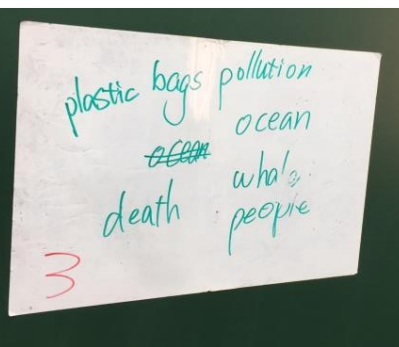 plastic bags pollution
ocean
ocean
whale
death people
3